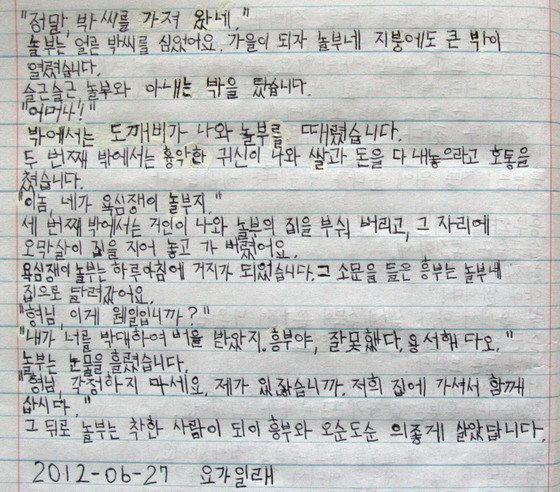 "정말, 박씨를 가져 왔네."
놀부는 얼른 박씨를 심었어요. 가을이 되자 놀부네 지붕에도 큰 박이
열렸습니다.
슬근슬근 놀부와 아내는 박을 탔습니다.
"어머나!"
박에서는 도깨비가 나와 놀부를 때렸습니다.
두 번째 박에서는 흉악한 귀신이 나와 쌀과 돈을 다 내놓으라고 호통을
쳤습니다.
"이놈, 네가 욕심쟁이 놀부지."
세 번째 박에서는 거인이 나와 놀부의 집을 부숴 버리고, 그 자리에
오막살이 집을 지어 놓고 가 버렸어요.
욕심쟁이 놀부는 하루아침에 거지가 되었습니다. 그 소문을 들은 흥부는 놀부네
집으로 달려갔어요.
"형님, 이게 웬일입니까?"
"내가 너를 박대하여 벌을 받았지. 흥부야, 잘못했다. 용서해 다오."
놀부는 눈물을 흘렸습니다.
"형님, 걱정하지 마세요. 제가 있잖습니까. 저희 집에 가셔서 함께
삽시다."
그 뒤로 놀부는 착한 사람이 되어 흥부와 오순도순 의좋게 살았답니다.
2012-06-27 요가일래